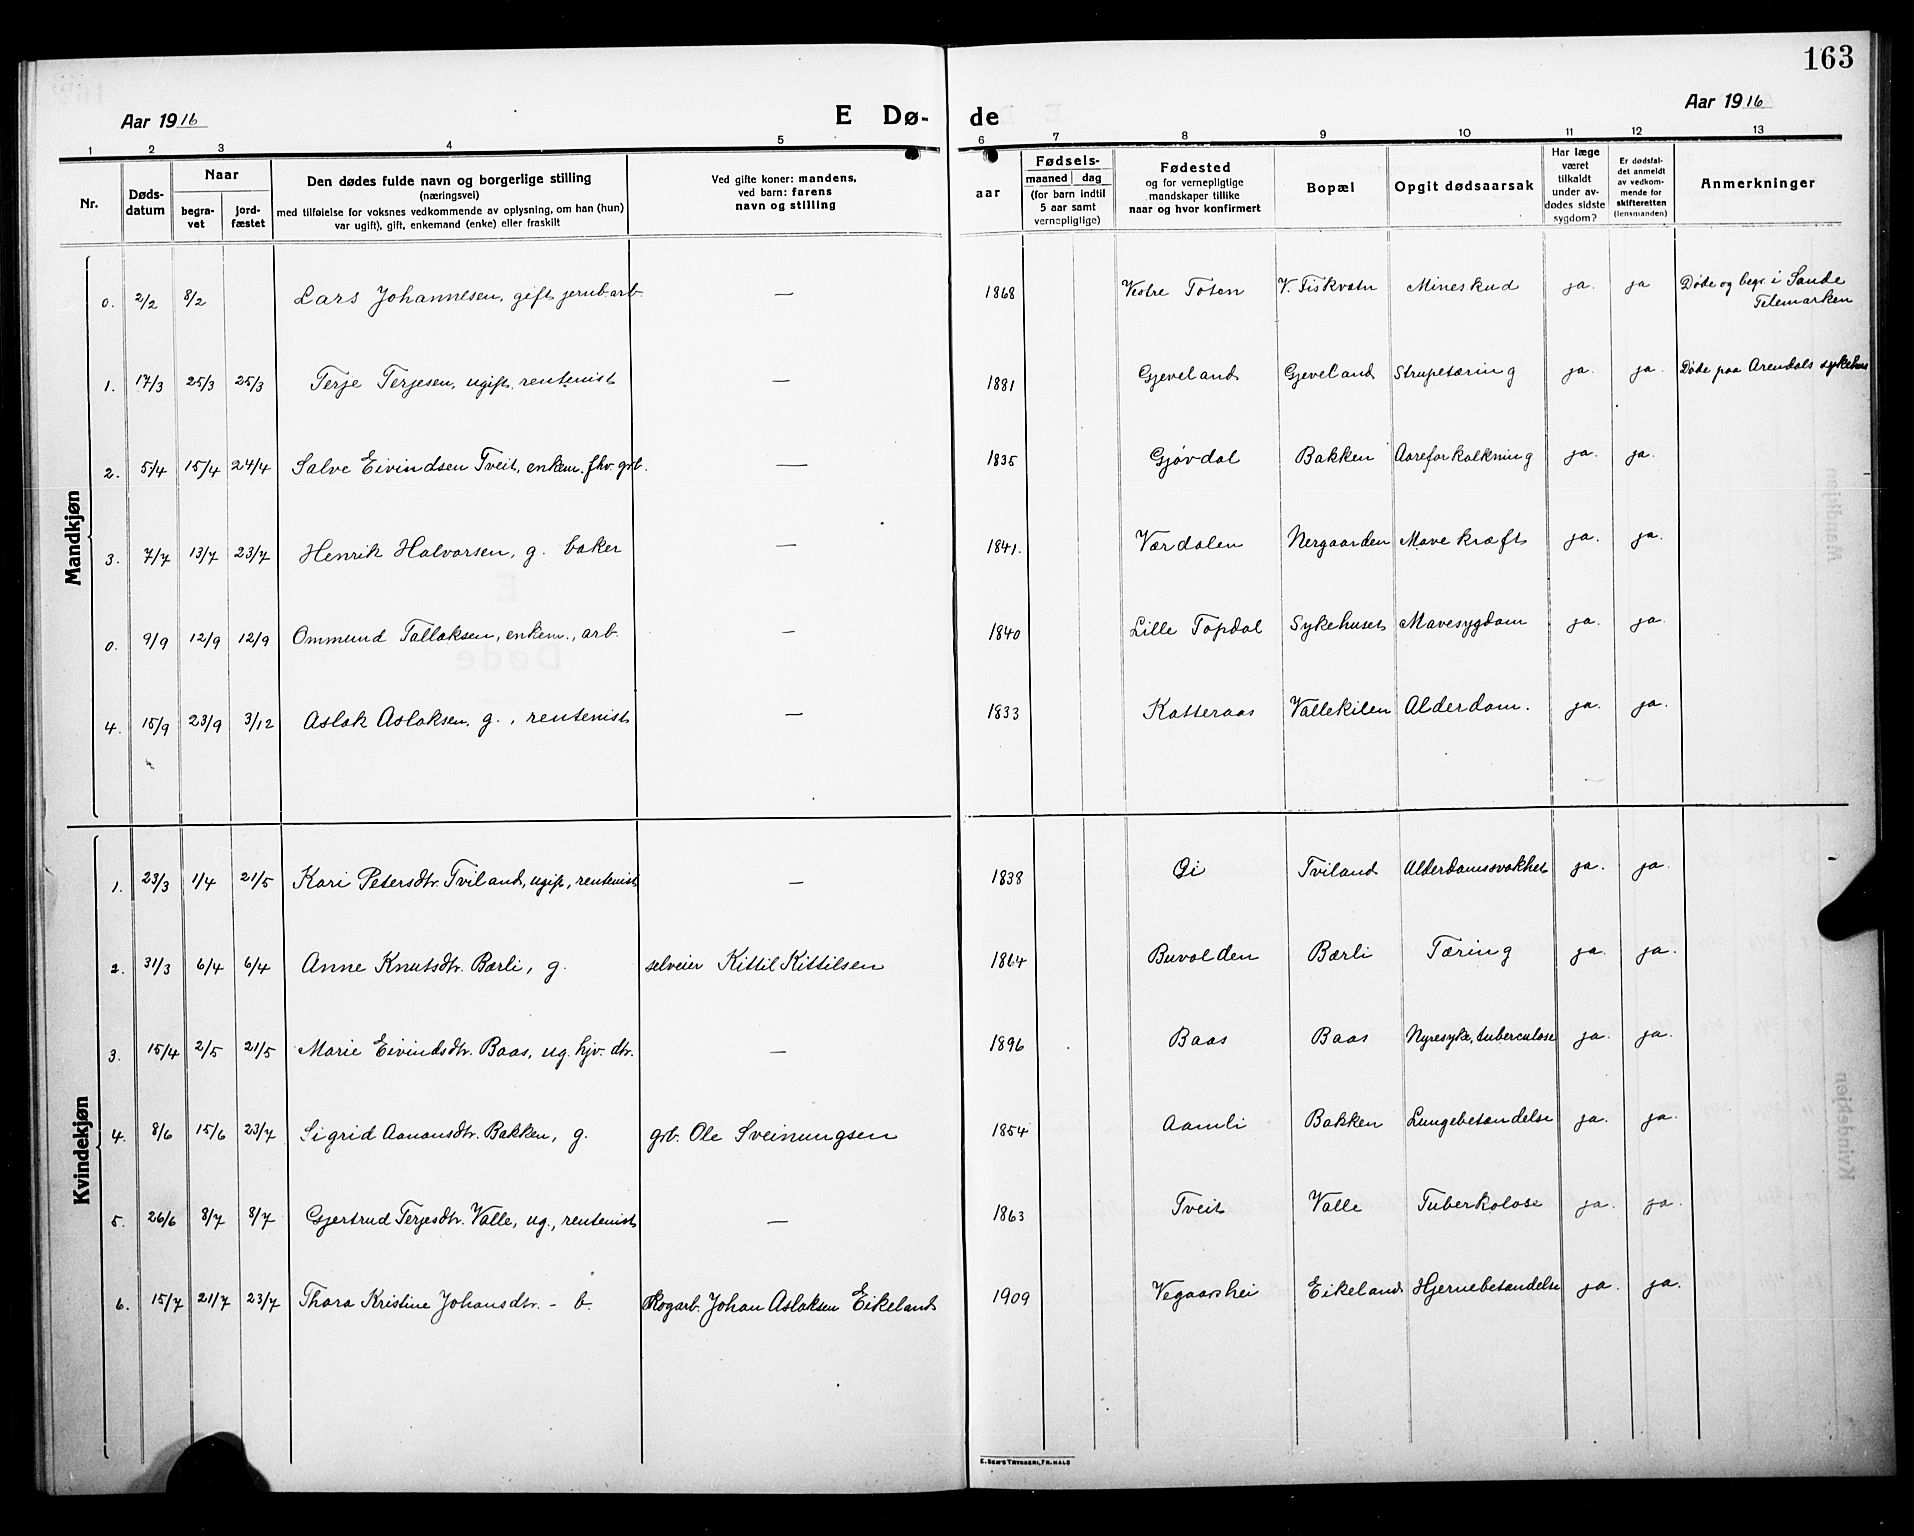 163
Aar 1916
E Dø-
de
Aar 1916
1 2 3 4 5 6 7 8 9 10 11 12 13
Nr.
Døds-
datum
Naar
begra-
vet
jord-
fæstet
Den dødes fulde navn og borgerlige stilling
(næringsvei)
med tilføielse for voksnes vedkommende av oplysning, om han (hun)
var ugift), gift, enkemand (enke) eller fraskilt
Ved gifte koner: mandens,
ved barn: farens
navn og stilling
Fødsels-
aar
maaned dag
(for barn indtil
5 aar samt
vernepligtige)
Fødested
og for vernepligtige
mandskaper tillike
naar og hvor konfirmert
Bopæl
Opgit dødsaarsak
Har læge
været
tilkaldt
under av-
dødes sidste
sygdom?
Er dødsfal-
det anmeldt
av vedkom-
mende for
skifteretten
(lensmanden)
Anmerkninger
Mandkjøn
0. 2/2 8/2 Lars Johannesen, gift jernb.arb. — 1868 Vestre Toten V. Fiskvatn Mineskud ja. ja Døde og begr. i Sande
Telemarken
1. 17/3 25/3 25/3 Terje Terjesen, ugift. rentenist — 1881 Gjeveland Gjeveland Strupetæring ja. ja. Døde paa Arendals sykehus
2. 5/4 15/4 24/4 Salve Eivindsen Tveit, enkem. fhv. grb. — 1835 Gjøvdal Bakken Aareforkalkning ja. ja.
3. 7/7 13/7 23/7 Henrik Halvorsen, g. baker — 1841. Værdalen Nergaarden Mavekræft ja. ja.
0. 9/9 12/9 12/9 Ommund Tallaksen, enkem., arb. — 1840 Lille Topdal Sykehuset Mavesygdom ja. ja.
4. 15/9 23/9 3/12 Aslak Aslaksen, g., rentenist — 1833 Katteraas Vallekilen Alderdom. ja. ja.
Kvindekjøn
1. 23/3 1/4 21/5 Kari Petersdtr. Tviland, ugift, rentenist — 1838 Øi Tviland Alderdomssvakhet ja. ja.
2. 31/3 6/4 6/4 Anne Knutsdtr. Bærli, g. selveier Kittil Kittilsen 1864 Buvolden Bærli Tæring ja. ja.
3. 15/4 2/5 21/5 Marie Eivindsdtr. Baas, ug. hjv. dtr. — 1896 Baas Baas Nyresyke, tuberculose ja. ja.
4. 8/6 15/6 23/7 Sigrid Aanonsdtr. Bakken, g. grb. Ole Sveinungsen 1854 Aamli Bakken Lungebetændelse ja. ja.
5. 26/6 8/7 8/7 Gjertrud Terjesdtr. Valle, ug., rentenist — 1863 Tveit Valle Tuberkolose ja. ja.
6. 15/7 21/7 23/7 Thora Kristine Johansdtr. - b. Skogarb. Johan Aslaksen Eikeland 1909 Vegaarshei Eikeland Hjernebetændelse ja. ja.